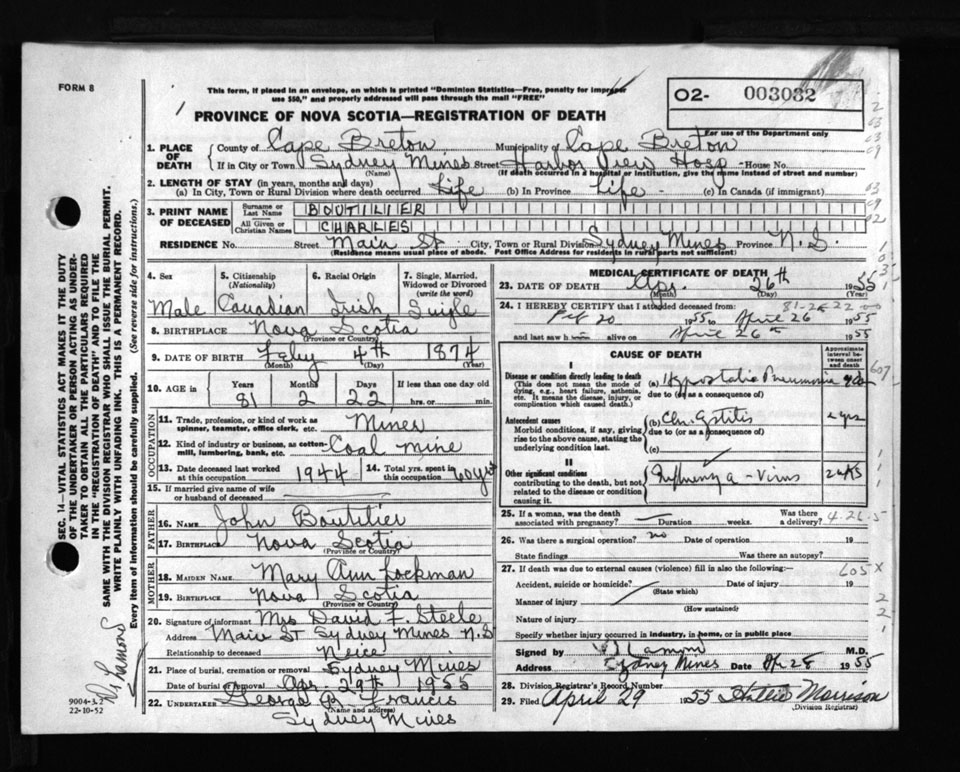 FORM 8
This form, if placed in an envelope, on which is printed "Dominion Statistics—Free, penalty for improper
use $50," and properly addressed will pass through the mail "FREE"
PROVINCE OF NOVA SCOTIA—REGISTRATION OF DEATH
O2- 003032
For use of the Department only
1. PLACE OF DEATH County of Cape Breton Municipality of Cape Breton
If in City or Town Sydney Mines Street Harbor View Hosp House No.
(Name) (If death occurred in a hospital or institution, give the name instead of street and number)
2. LENGTH OF STAY (in years, months and days)
(a) In City, Town or Rural Division where death occurred Life (b) In Province Life (c) In Canada (if immigrant)
3. PRINT NAME OF DECEASED Surname or Last Name BOUTILIER
All Given or Christian Names CHARLES
RESIDENCE No. Street Main St City, Town or Rural Division Sydney Mines Province N.S.
(Residence means usual place of abode. Post Office Address for residents in rural parts not sufficient)
4. Sex 5. Citizenship (Nationality) 6. Racial Origin 7. Single, Married, Widowed or Divorced (write the word)
Male Canadian Irish Single
8. BIRTHPLACE Nova Scotia
(Province or Country)
9. DATE OF BIRTH Feby 4th 1874
(Month) (Day) (Year)
10. AGE in Years Months Days If less than one day old
81 2 22 hrs. or min.
OCCUPATION
11. Trade, profession or kind of work as spinner, teamster, office clerk, etc. Miner
12. Kind of industry or business, as cotton-mill, lumbering, bank, etc. Coal mine
13. Date deceased last worked at this occupation 1944 14. Total yrs. spent in this occupation 60 yrs
15. If married give name of wife or husband of deceased
FATHER
16. NAME John Boutilier
17. BIRTHPLACE Nova Scotia
(Province or Country)
MOTHER
18. MAIDEN NAME Mary Ann Lockman
19. BIRTHPLACE Nova Scotia
(Province or Country)
20. Signature of informant Mrs David F. Steele
Address Main ST Sydney Mines N.S
Relationship to deceased Neice
21. Place of burial, cremation or removal Sydney Mines
Date of burial or removal Apr 29th 1955
22. UNDERTAKER George R. Francis
(Name and address)
Sydney Mines
MEDICAL CERTIFICATE OF DEATH
23. DATE OF DEATH Apr. 26th 1955
(Month) (Day) (Year)
24. I HEREBY CERTIFY that I attended deceased from: 81-2-22
Feb 20 1955 to April 26 1955
and last saw him alive on April 26th 1955
CAUSE OF DEATH
Approximate interval between onset and death
I
Disease or condition directly leading to death
(This does not mean the mode of dying, e.g., heart failure, asthenia, etc. It means the disease, injury, or complication which caused death.)
(a) Hypostatic Pneumonia
due to (or as a consequence of)
Antecedent causes
Morbid conditions, if any, giving rise to the above cause, stating the underlying condition last.
(b) Chr. Cystitis
due to (or as a consequence of)
(c)
II
Other significant conditions contributing to the death, but not related to the disease or condition causing it.
Influenza - Virus
25. If a woman, was the death associated with pregnancy? Duration weeks. Was there a delivery?
26. Was there a surgical operation? no Date of operation 19
State findings Was there an autopsy?
27. If death was due to external causes (violence) fill in also the following:— 605 X
Accident, suicide or homicide? Date of injury 19
(State which)
Manner of injury
(How sustained)
Nature of injury
Specify whether injury occurred in industry, in home, or in public place
Signed by M.D.
Address Sydney Mines Date Apr 28 1955
28. Division Registrar's Record Number
29. Filed April 29 1955 Hattie Morrison
(Division Registrar)
SEC. 14—VITAL STATISTICS ACT MAKES IT THE DUTY
OF THE UNDERTAKER OR PERSON ACTING AS UNDER-
TAKER TO OBTAIN ALL THE PARTICULARS REQUIRED
IN THE "REGISTRATION OF DEATH" AND TO FILE THE
SAME WITH THE DIVISION REGISTRAR WHO SHALL ISSUE THE BURIAL PERMIT.
WRITE PLAINLY WITH UNFADING INK. THIS IS A PERMANENT RECORD.
Every item of information should be carefully supplied. (See reverse side for instructions.)
9004-3.2
22-10-52